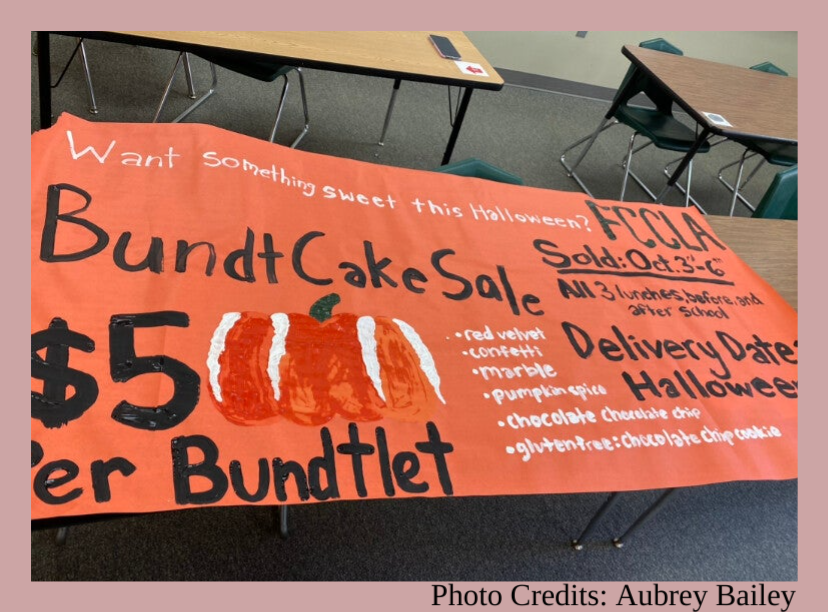 Want something sweet this Halloween?
FCCLA
Bundt Cake Sale
Sold: Oct. 3rd-6th
All 3 lunches, before, and
after school
$5
er Bundtlet
• red velvet
• confetti
• marble
• pumpkin spice
• chocolate chocolate chip
• gluten-free: chocolate chip cookie
Delivery Date:
Hallowee
Photo Credits: Aubrey Bailey